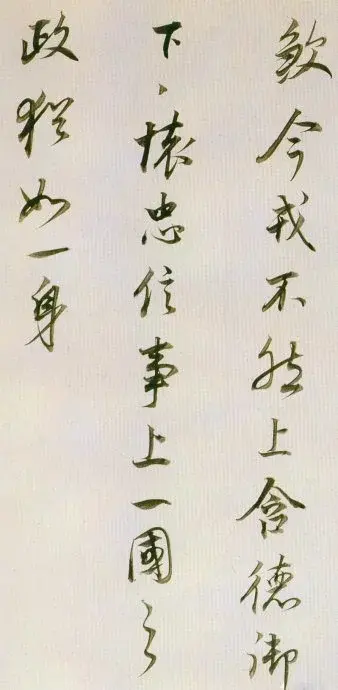 歟今戎不然上含德御
下、懷忠信事上一國之
政猶如一身